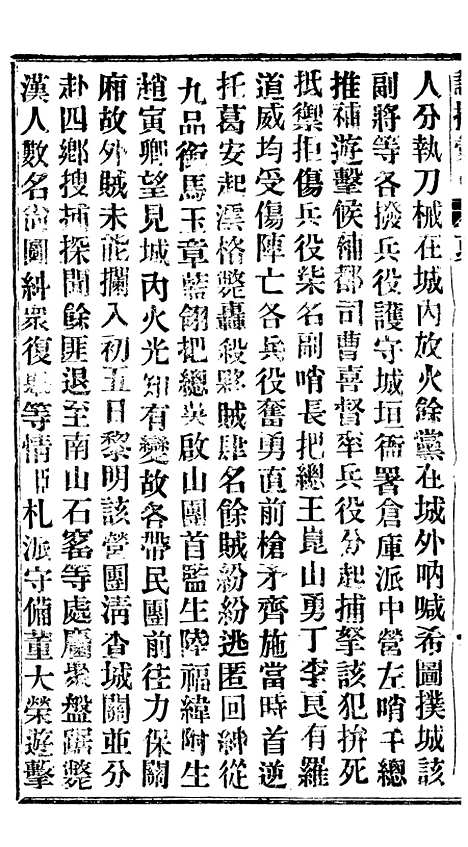 人分執刀械在城內放火餘黨在城外吶喊希圖撲城該
副將等各撥兵役護守城垣衙署倉庫派中營左哨千總
推補遊擊候補都司曹喜督率兵役分起捕拏該犯拚死
抵禦拒傷兵役柴名副哨長把總王崑山勇丁李良有羅
道威均受傷陣亡各兵役奮勇直前槍矛齊施當時首逆
托葛安起澐格斃轟殺夥賊肆名餘賊紛紛逃匿回紳從
九品銜馬玉章藍翎把總吳啟山團首監生陸福緯附生
趙寅卿望見城內火光知有變故各帶民團前往力保關
廂故外賊未能攔入初五日黎明該營團清查城關並分
赴四鄉搜捕探聞餘匪退至南山石窰等處屬衆盤踞斃
漢人數名尙圖糾衆復舉等情亟札派守備董大榮遊擊